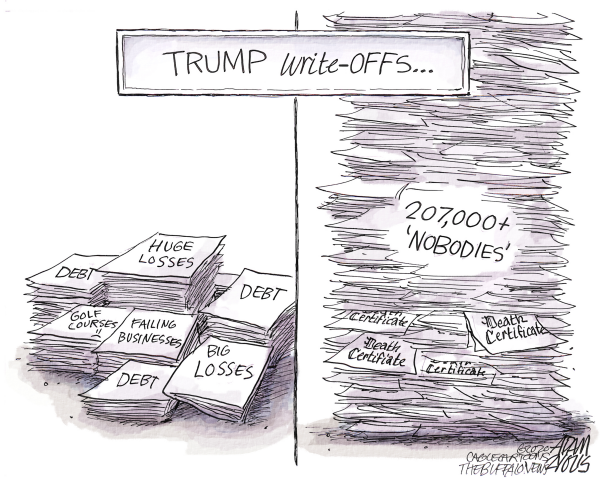 TRUMP write-OFFS...
HUGE
LOSSES
DEBT
DEBT
GOLF
COURSES
FAILING
BUSINESSES
BIG
LOSSES
DEBT
207,000+
'NOBODIES'
Certificate
Death
Certificate
Death
Certifiate
Certificate
©2020
CAGLECARTOONS
THE BUFFALO NEWS
ADAM
ZYGLIS